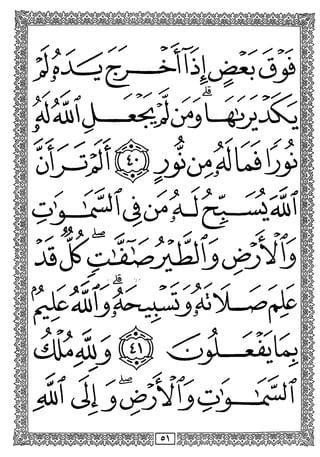 فَوْقَ بَعْضٍ إِذَآ أَخْرَجَ يَدَهُۥ لَمْ
يَكَدْ يَرَىٰهَا ۗ وَمَن لَّمْ يَجْعَلِ ٱللَّهُ لَهُۥ
نُورًا فَمَا لَهُۥ مِن نُّورٍ ﴿٤٠﴾ أَلَمْ تَرَ أَنَّ
ٱللَّهَ يُسَبِّحُ لَهُۥ مَن فِى ٱلسَّمَٰوَٰتِ
وَٱلْأَرْضِ وَٱلطَّيْرُ صَٰٓفَّٰتٍ ۖ كُلٌّ قَدْ
عَلِمَ صَلَاتَهُۥ وَتَسْبِيحَهُۥ ۗ وَٱللَّهُ عَلِيمٌۢ
بِمَا يَفْعَلُونَ ﴿٤١﴾ وَلِلَّهِ مُلْكُ
ٱلسَّمَٰوَٰتِ وَٱلْأَرْضِ ۖ وَإِلَى ٱللَّهِ
٥١